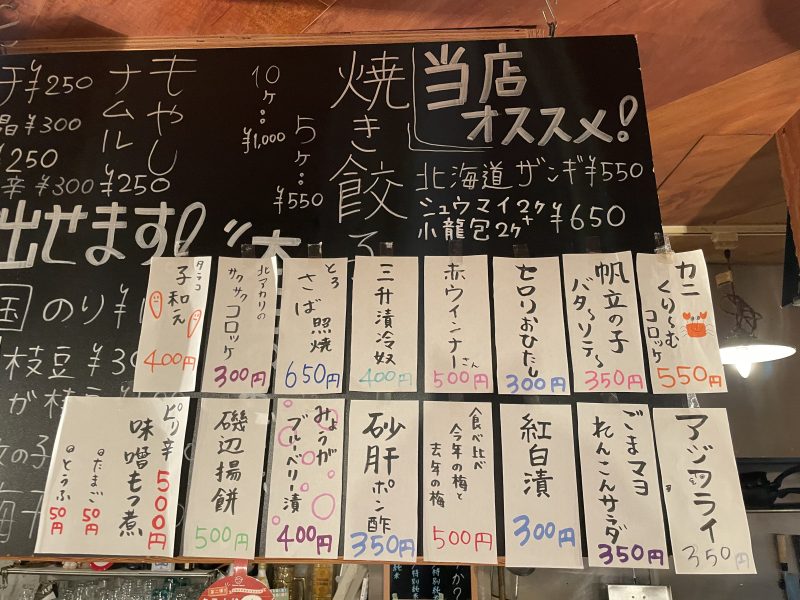 当店
オススメ!
北海道 ザンギ ¥550
シュウマイ2ケ+
小龍包2ケ
¥650
焼き餃子
5ケ:
¥550
10ケ:
¥1,000
もやし
ナムル
¥250
¥250
¥300
¥250
辛 ¥300
出せます!
国 のり ¥
枝豆 ¥3
カニ
くり〜む
コロッケ
550円
帆立の子
バタ〜ソテ〜
350円
セロリおひたし
300円
赤ウインナーさん
500円
三升漬冷奴
400円
とろ
さば照焼
650円
北アカリの
サクサク
コロッケ
300円
タラコ
子和え
400円
アジフライ
350円
ごまマヨ
れんこんサラダ
350円
紅白漬
300円
食べ比べ
今年の梅と
去年の梅
500円
砂肝ポン酢
350円
みょうが
ブルーベリー漬
400円
磯辺揚餅
500円
ピリ辛
味噌もつ煮
500円
@たまご
50円
@とうふ
50円